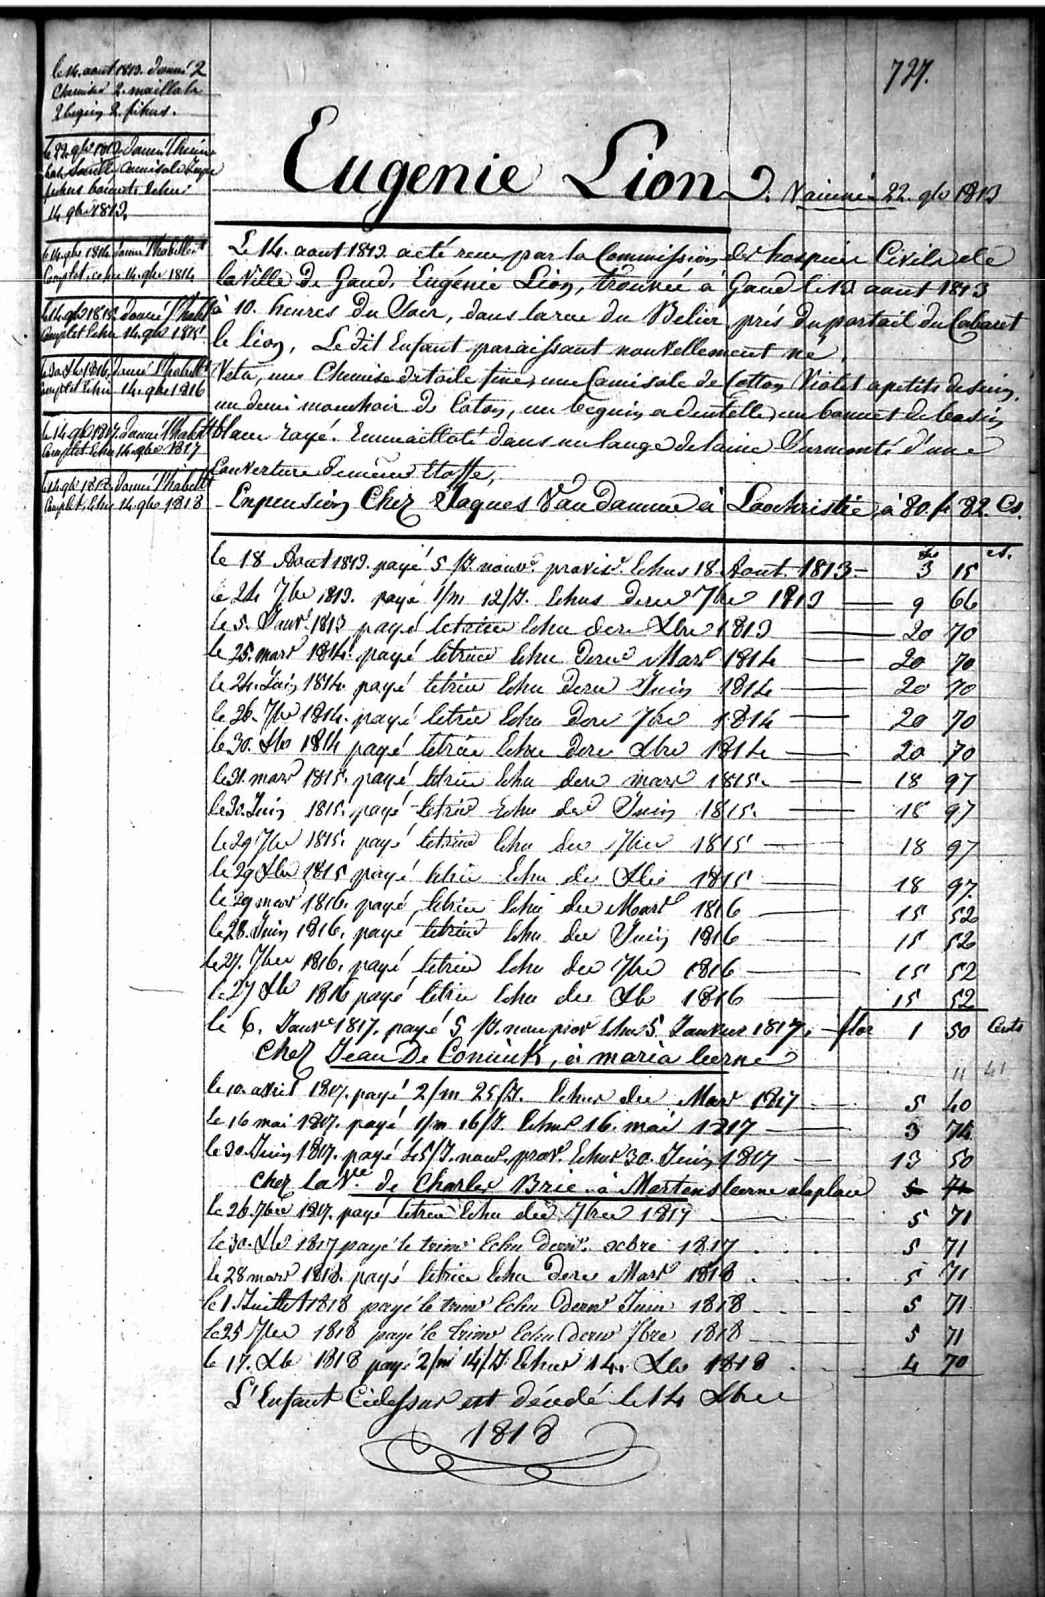 727.
le 14. aout 1813. donné 2
Chemises 2. maillots
2 beguins 2. fichus.
le 22. 9bre 1813 donné
14 9bre 1813.
le 14. 9bre 1814 donné l'habillt
Complet, echu 14. 9bre 1814
le 14. 9bre 1815 donné l'habillt
Complet Echu 14. 9bre 1815
le 30 Xbre 1816, donné l'habillt
Complet Echu 14. 9bre 1816
le 14. 9bre 1817 donné l'habillt
Complet Echu 14. 9bre 1817
le 14. 9bre 1818 donné l'habillt
Complet, Echu 14. 9bre 1818
Eugenie Lion. Vaccinée 22. 9bre 1813
Le 14. aout 1813 acté reçu par la Commission des hospices Civils de
la Ville de Gand, Eugénie Lion, trouvée à Gand le 13 aout 1813
à 10. heures du Soir, dans la rue du Belier près du portail du Cabaret
le lion, Le dit Enfant paraissant nouvellement né,
Vetu, une Chemise de toile fine, une Camisole de Cotton Violet a petits dessins,
un demi mouchoir de Coton, un beguin a dentelle, un bonnet de basin
blanc rayé. Emmailloté dans un lange de laine Surmonté d'une
Couverture de meme Etoffe,
En pension Chez Jaques Van Damme à Loochristie, à 80. fr 82. Cs.
fs ct.
le 18 Aout 1813. payé 5 js. nourre provisr. Echus 18 Aout. 1813 - 3 15
le 24 7bre 1813. payé 1/m 12/js. Echus dere 7bre 1813 — 9 66
le 5. Janvr 1813 payé le trime Echu dere Xbre 1813 — 20 70
le 25. mars 1814. payé le trime Echu dere Mars 1814 — 20 70
le 24. Juin 1814. payé le trime Echu dere Juin 1814 — 20 70
le 26. 7bre 1814. payé le trime Echu dere 7bre 1814 — 20 70
le 30. Xbre 1814 payé le trime Echu dere Xbre 1814 — 20 70
le 31. mars 1815. payé le trime Echu dere mars 1815. — 18 97
le 30. Juin 1815. payé le trime Echu der Juin 1815. — 18 97
le 29 7bre 1815. payé le trime Echu der 7bre 1815 — 18 97
le 29 Xbre 1815 payé le trime Echu der Xbre 1815 — 18 97.
le 29 mars 1816. payé le trime Echu der Mars 1816 — 15 52
le 28. Juin 1816. payé le trime Echu der Juin 1816 — 15 52
le 27. 7bre 1816. payé le trime Echu der 7bre 1816 — 15 52
le 27 Xbre 1816 payé le trime Echu der Xbre 1816 — 15 52
le 6. Janvr 1817. payé 5 js. nour prov Echus 5 Janvier 1817. — flor 1 50 Cents
Chez Jean De Coninck, à maria leerne
11 41
le 10. avril 1817. payé 2/m 25/js. Echus der Mars 1817 — 5 40
le 16 mai 1817. payé 1/m. 16/js. Echus 16. mai 1817 — 3 74
le 30. Juin 1817. payé 45/js. nour. prov. Echus 30. Juin 1817 — 13 50
chez la Ve. de Charles Brie. à Martens leerne a la place 5 71
le 26. 7bre 1817. payé le trime Echu der 7bre 1817 — 5 71
le 30. Xbre 1817 payé le trimr Echu dernr. xbre 1817 . . . 5 71
le 28 mars 1818. payé le trime Echu dere Mars 1818 . . . 5 71
le 1 Juillet 1818 payé le trimr Echu dernr Juin 1818 . . . 5 71
le 25 7bre 1818 payé le trimr Echu dernr 7bre 1818 — 5 71
le 17. Xbre 1818 payé 2/m 14/js Echus 14. Xbre 1818 . . . 4 70
L'Enfant Cidessus est décédé le 14 Xbre
1818